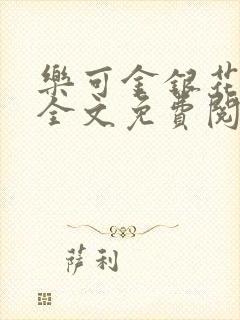 樂可金銀花
全文免費閱
萨利